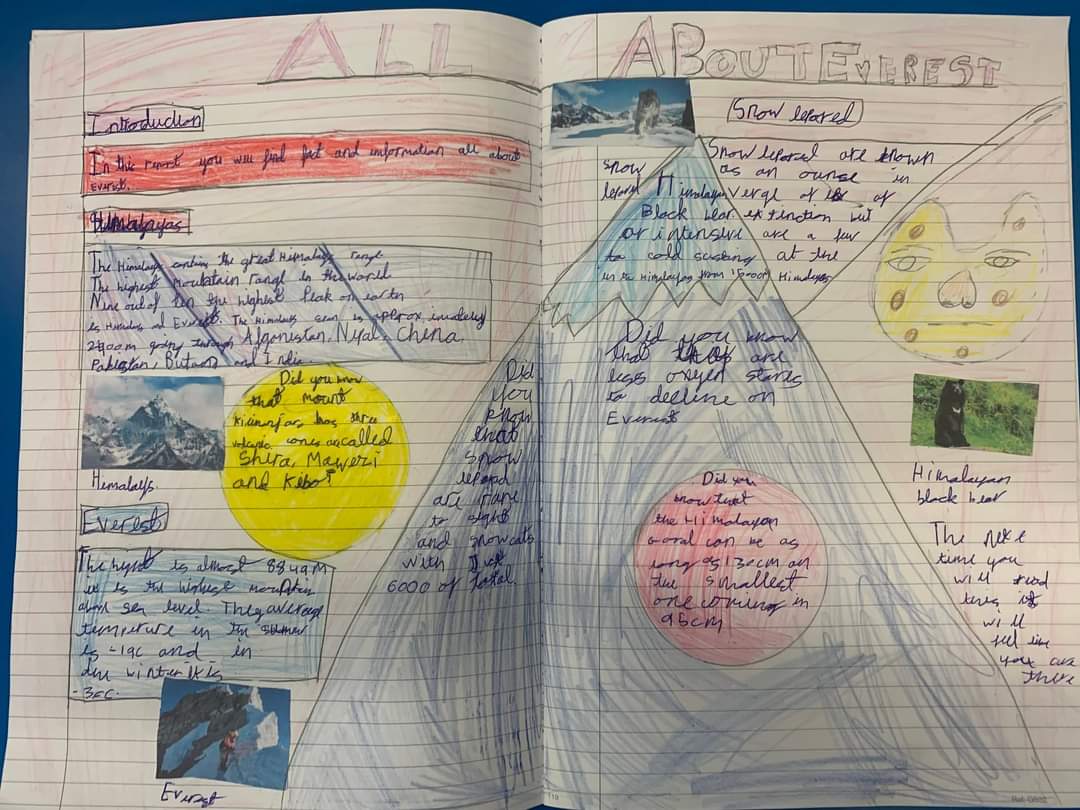 ALL ABOUT EVEREST
Introduction
In this report you will find fact and information all about
Everest.
Himalayas
The Himalays contain the great Himalays range
The highest mountain range in the world
Nine out of ten the highest Peak on earth
is Himalays and Everest. The Himalays seen is approx imately
2900m going through Afgonistan, Nepal, China,
Pakistan, Butaon and India.
Did you know
that mount
has three
volcanic cones called
Shira, Maweri
and Kibo?
Himalays.
Everest
The hight is almost 8849M
it is the highest mountain
above sea level. They average
tempreture in the summer
is -19c and in
the winter it is
-36c.
Everest
Did
you
know
that
snow
lepard
are rare
to sight
and snow cats
with Just
6000 of total
Snow lepared
Snow leparal are known
as an ounse in
verge of of
extinction but
are a few
at the
Himalayas
Snow
leparal Himalayan
Black bear
or intensive
to cold
in the Himalayas from 15000ft
Did you know
that are
less oxyen starts
to decline on
Everest
Did you
know that
the Himalayan
Goral can be as
long as 130cm on
the smallest
one coming in
95cm
Himalayan
black bear
The next
time you
will read
this it
will
feel like
you are
there